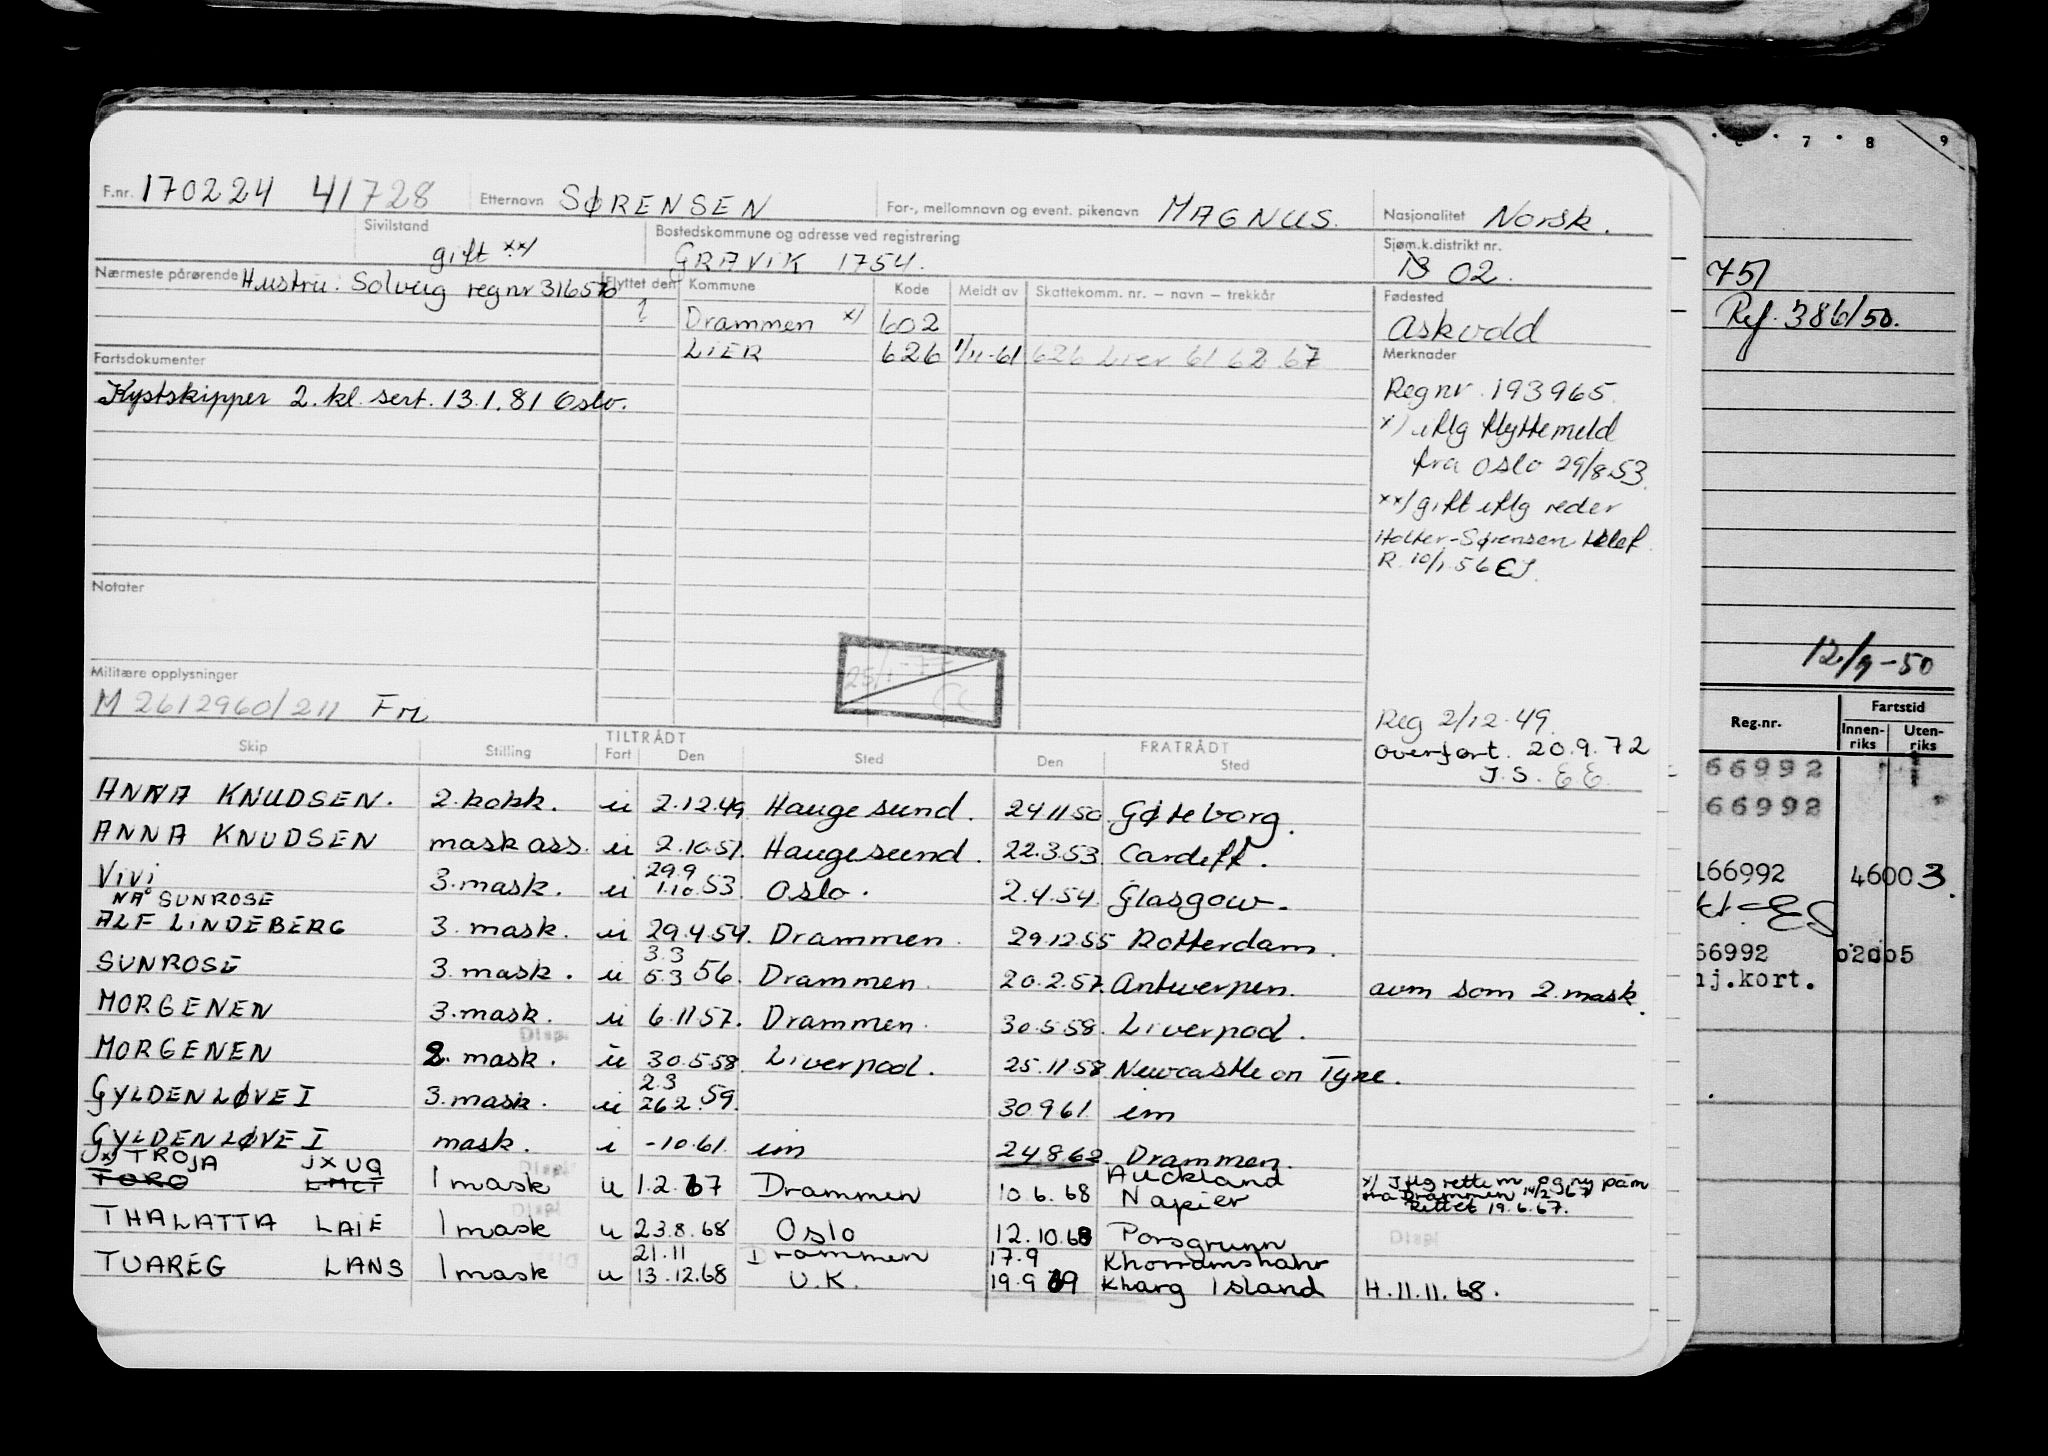 F.nr. 170224 41728 Etternavn SØRENSEN For-, mellomnavn og event. pikenavn MAGNUS. Nasjonalitet Norsk.
Sivilstand gift xx/ Bostedskommune og adresse ved registrering GRAVIK 1754. Sjøm.k.distrikt nr. 02.
Nærmeste pårørende Hustru: Solveig regnr 316570 Flyttet den Kommune Kode Meldt av Skattekomm. nr. – navn – trekkår Fødested
? Drammen x/ 602 Askvold
LIER 626 1/11-61 626 Lier 61 62 67 Merknader
Fartsdokumenter
Kystskipper 2. kl. sert. 13.1.81 Oslo.
Regnr. 193965.
x) iflg flyttemeld
fra Oslo 29/8 53.
xx/ gift iflg reder
Holter-Sørensen telef.
R. 10/1.56 EJ.
Notater
Militære opplysninger
M 2612960/211 Fm
25/1-
Reg 2/12.49.
overført. 20.9.72
J.S. EE.
Skip Stilling TILTRÅDT Fart Den Sted FRATRÅDT Den Sted
ANNA KNUDSEN. 2.kokk. u 2.12.49 Haugesund. 24.11.50. Gøteborg.
ANNA KNUDSEN maskass. u 2.10.51. Haugesund. 22.3.53 Cardiff.
VIVI 3.mask. u 29.9 1.10.53 Oslo. 2.4.54. Glasgow.
NÅ SUNROSE
ALF LINDEBERG 3. mask. u 29.4.54. Drammen. 29.12.55 Rotterdam.
SUNROSE 3. mask. u 3.3 5.3 56. Drammen. 20.2.57. Antwerpen. avm som 2.mask.
MORGENEN 3.mask. u 6.11.57. Drammen. 30.5.58. Liverpool.
Displ
MORGENEN 2. mask. u 30.5.58 Liverpool. 25.11.58 Newcastle on Tyne.
GYLDENLØVE I 3.mask. u 2.3 26.2.59. 30.9.61 im
GYLDENLØVE I mask. i -.10.61. im 24.8.62. Drammen.
x) TROJA JXUG Displ
TORO LMCT 1 mask u 1.2.67 Drammen 10.6.68 Auckland Napier x/ Iflg rettem og ny påm fra Drammen 14/2 67 Rettet 19.6.67.
Displ
THALATTA LAIE 1 mask u 23.8.68 Oslo 12.10.68 Porsgrunn Displ
TUAREG LANS 1 mask u 21.11 13.12.68 Drammen U.K. 17.9 19.9 69 Khorramshahr Kharg Island H.11.11.68.
7 8 9
75/
Ref. 386/50.
12/9-50
Reg.nr. Fartstid
Innen-riks Uten-riks
66992
66992
166992 46003.
66992 02005
nj.kort.